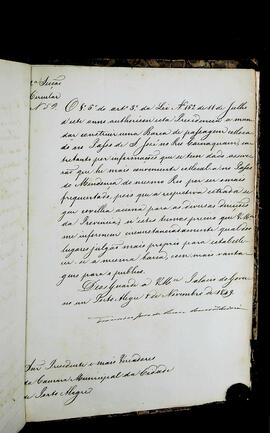 2ª Secção
Circular
Nº 59
O §. 5º do artº 3º da Lei Nº 152 de 11 de Julho
d'este anno authorisou esta Presidencia a man
dar construir uma Barca de passagem colloca
da no Passo de S. José no Rio Camaquam; en
tretanto por informações que se tem dado
que he mais conveniente collocal-a no Passo
do Mendonça do mesmo Rio por ser mais
frequentado, pois que a respectiva estrada se
gue para as diversas direcções
da Provincia; n'estes termos preciso que V.Mces
me informem circunstanciadamente qual dos
lugares julgão mais proprio para estabele
cer-se a mesma barca, com mais vanta
gens para o publico.
Deos guarde a V.Mces Palacio do Gover
no em Porto Alegre de Novembro de 1849.
Snr Presidente e mais Vereadores
da Camara Municipal da Cidade
de Porto Alegre